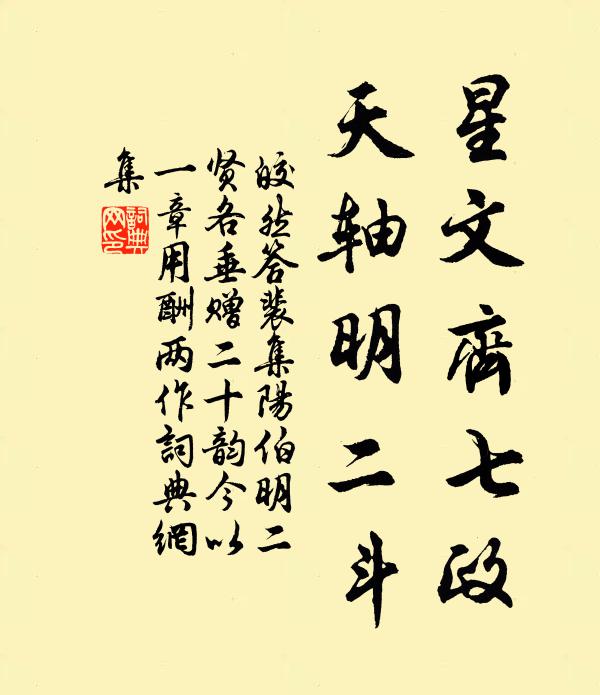 星文齊七政
天軸明二斗
皎然答裴集陽伯明二
贤各垂赠二十韵今以
一章用酬两作詞典網
集
詞典
网印